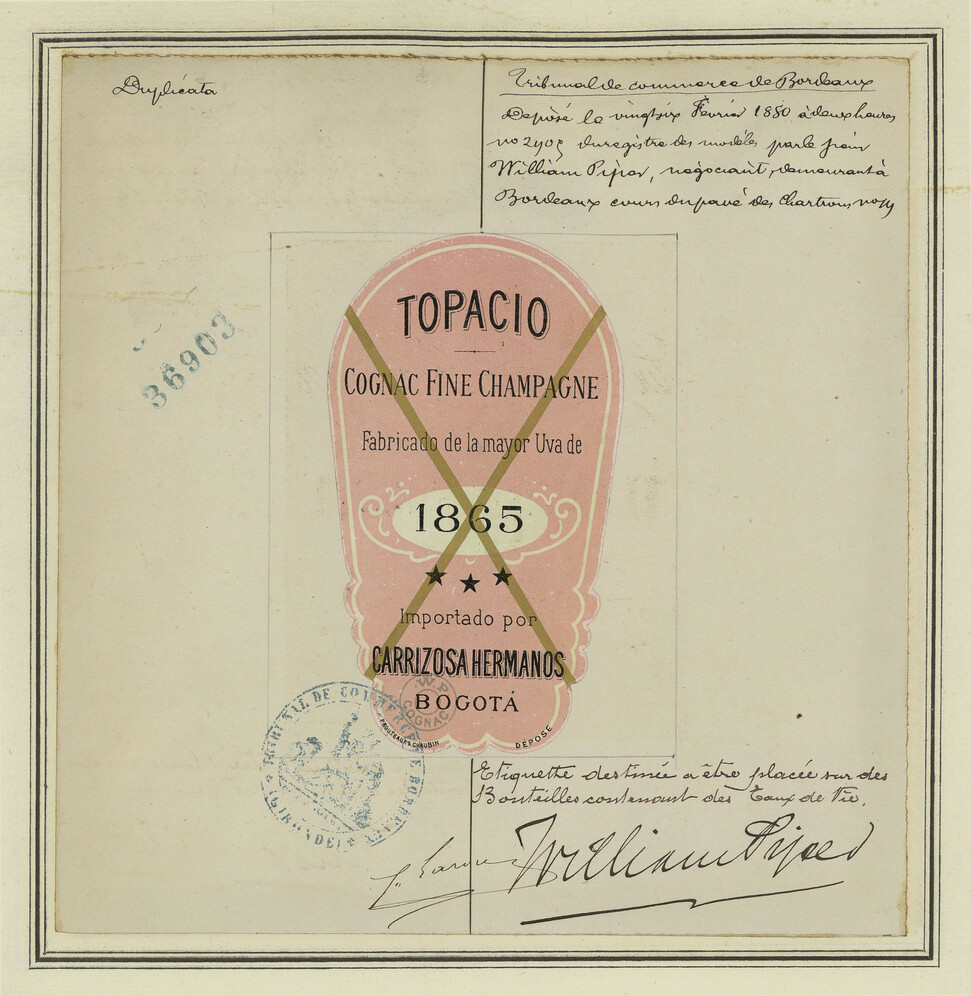 Duplicata
Tribunal de commerce de Bordeaux
Déposé le vingt six Février 1880 à deux heures
no du registre des modèles par le sieur
William Piper, négociant, demeurant à
Bordeaux cours du pavé des Chartrons no
36903
TOPACIO
COGNAC FINE CHAMPAGNE
Fabricado de la mayor Uva de
1865
Importado por
CARRIZOSA HERMANOS
BOGOTÁ
W.P.
COGNAC
PROUTEAUX & CHAUBIN
DÉPOSÉ
TRIBUNAL DE COMMERCE DE BORDEAUX
(GIRONDE)
Etiquette destinée a être placée sur des
Bouteilles contenant des Eaux de Vie.
William Piper